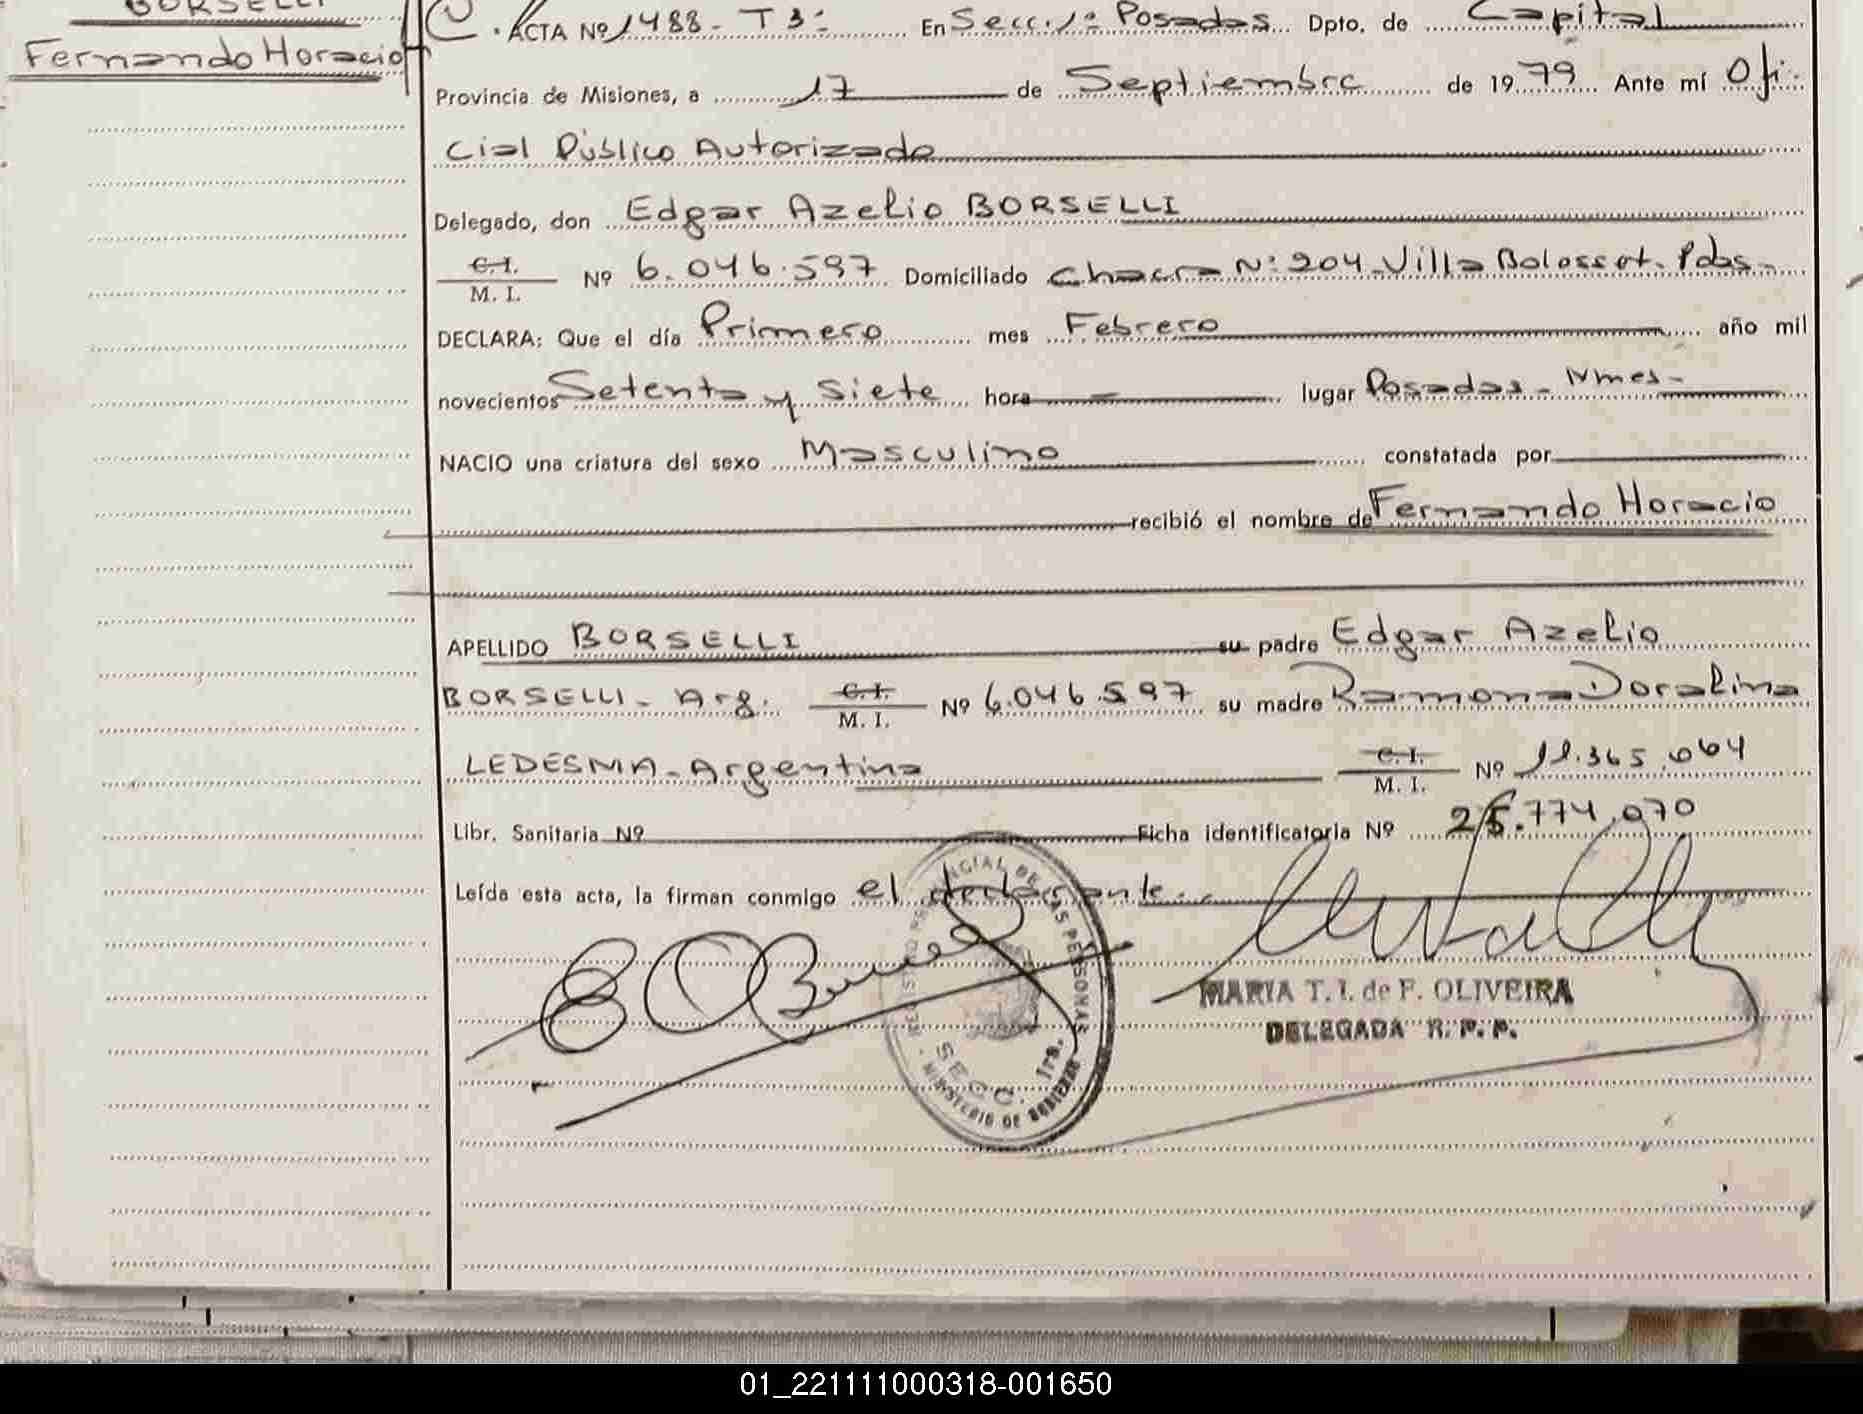 BORSELLI
Fernando Horacio
ACTA Nº 1488 - T 3º En Secc. 1º Posadas Dpto. de Capital
Provincia de Misiones, a 17 de Septiembre de 1979 Ante mí Ofi-
cial Público Autorizado
Delegado, don Edgar Azelio BORSELLI
C.I. / M. I. Nº 6.046.597 Domiciliado Chacra Nº 204 - Villa Bolosset. Pdas-
DECLARA: Que el día Primero mes Febrero año mil
novecientos Setenta y Siete hora — lugar Posadas - Mnes-
NACIO una criatura del sexo Masculino constatada por
recibió el nombre de Fernando Horacio
APELLIDO BORSELLI su padre Edgar Azelio
BORSELLI - Arg. C.I. / M. I. Nº 6.046.597 su madre Ramona Doralina
LEDESMA - Argentina C.I. / M. I. Nº 11.365.064
Libr. Sanitaria Nº Ficha identificatoria Nº 25.774.070
Leída esta acta, la firman conmigo el declarante.-
REGISTRO PROVINCIAL DE LAS PERSONAS
SECC. 1ra.
MINISTERIO DE GOBIERNO
MARIA T. I. de F. OLIVEIRA
DELEGADA R. P. P.
01_221111000318-001650